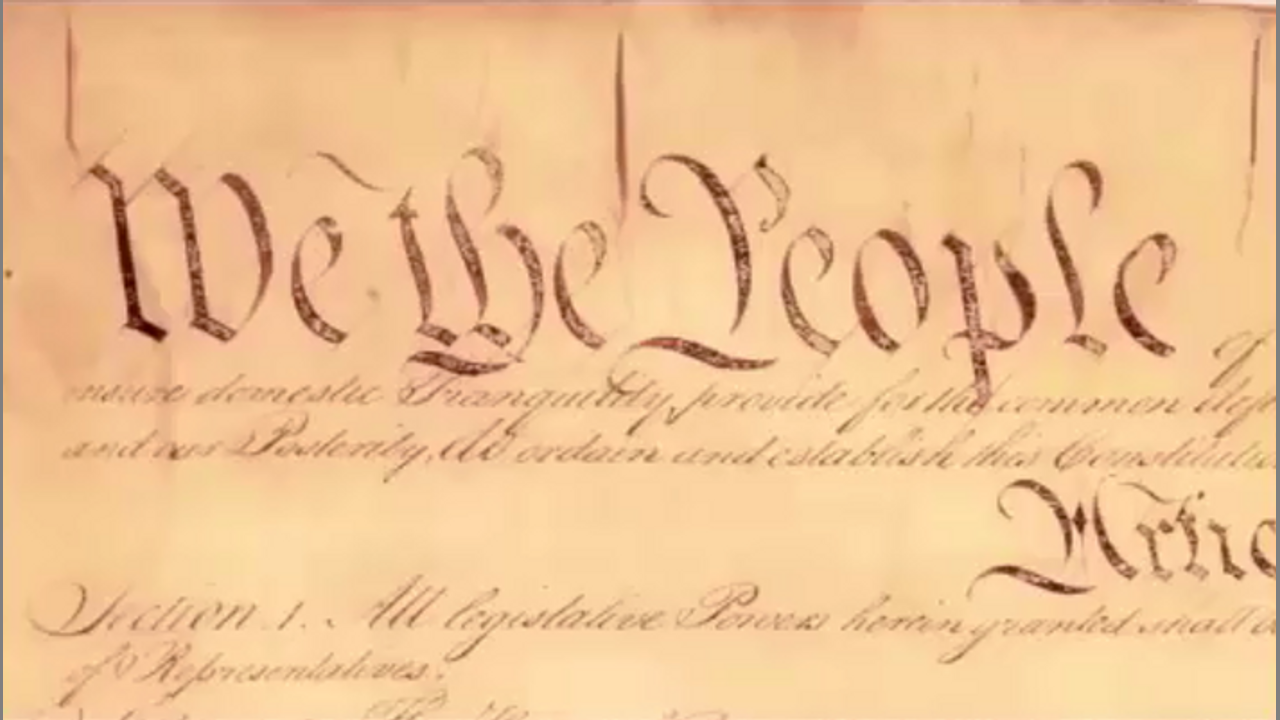 We the People of
insure domestic Tranquility, provide for the common def
and our Posterity, do ordain and establish this Constitutio
Artic
Section 1. All legislative Powers herein granted shall be
of Representatives.